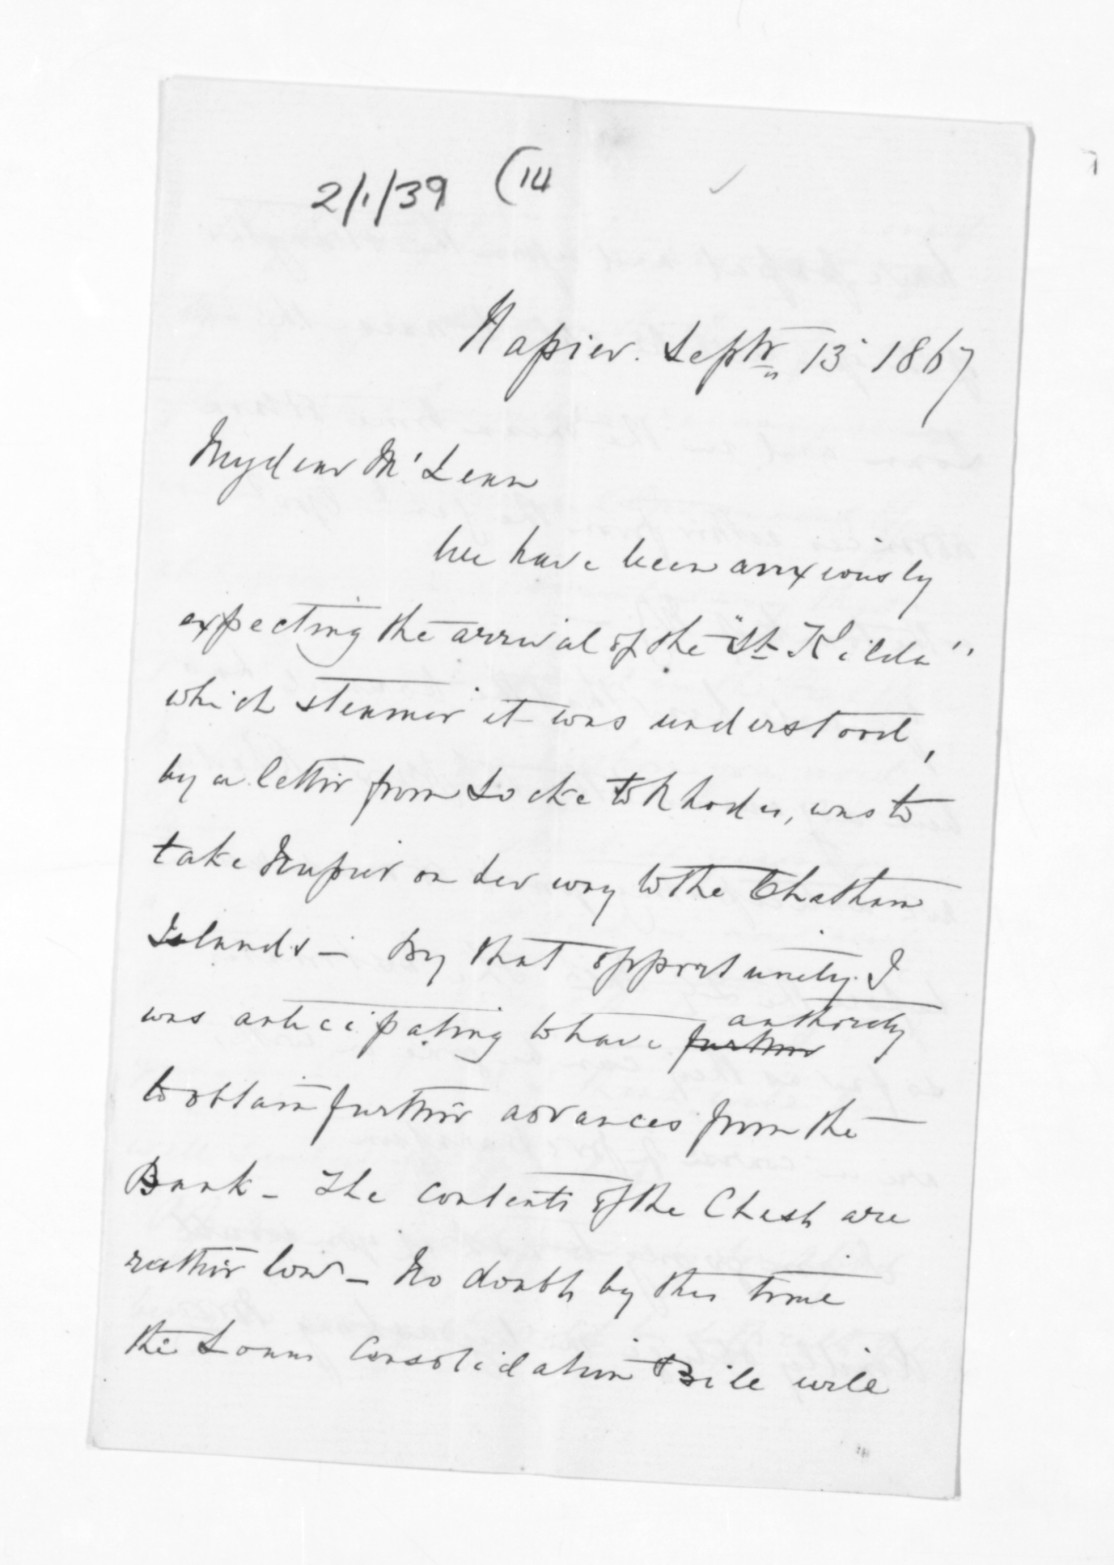 2/1/39 (14
Napier. Septr. 13 1867
My dear McLean
We have been anxiously
expecting the arrival of the "St Kilda"
which steamer it was understood,
by a letter from Locke to Rhodes, was to
take Napier on her way to the Chatham
Islands - By that opportunity I
was anticipating to have further authority
to obtain further advances from the
Bank - The contents of the Chest are
rather low - No doubt by this time
the Loans Consolidation Bill will